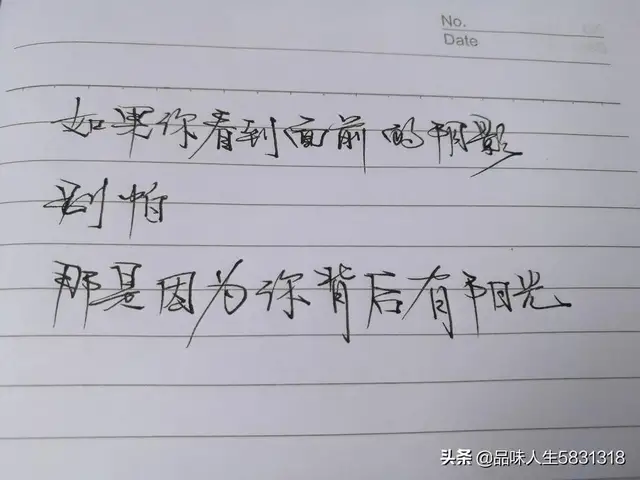 No.
Date
如果你看到面前的阴影
别怕
那是因为你背后有阳光
头条 @品味人生5831318